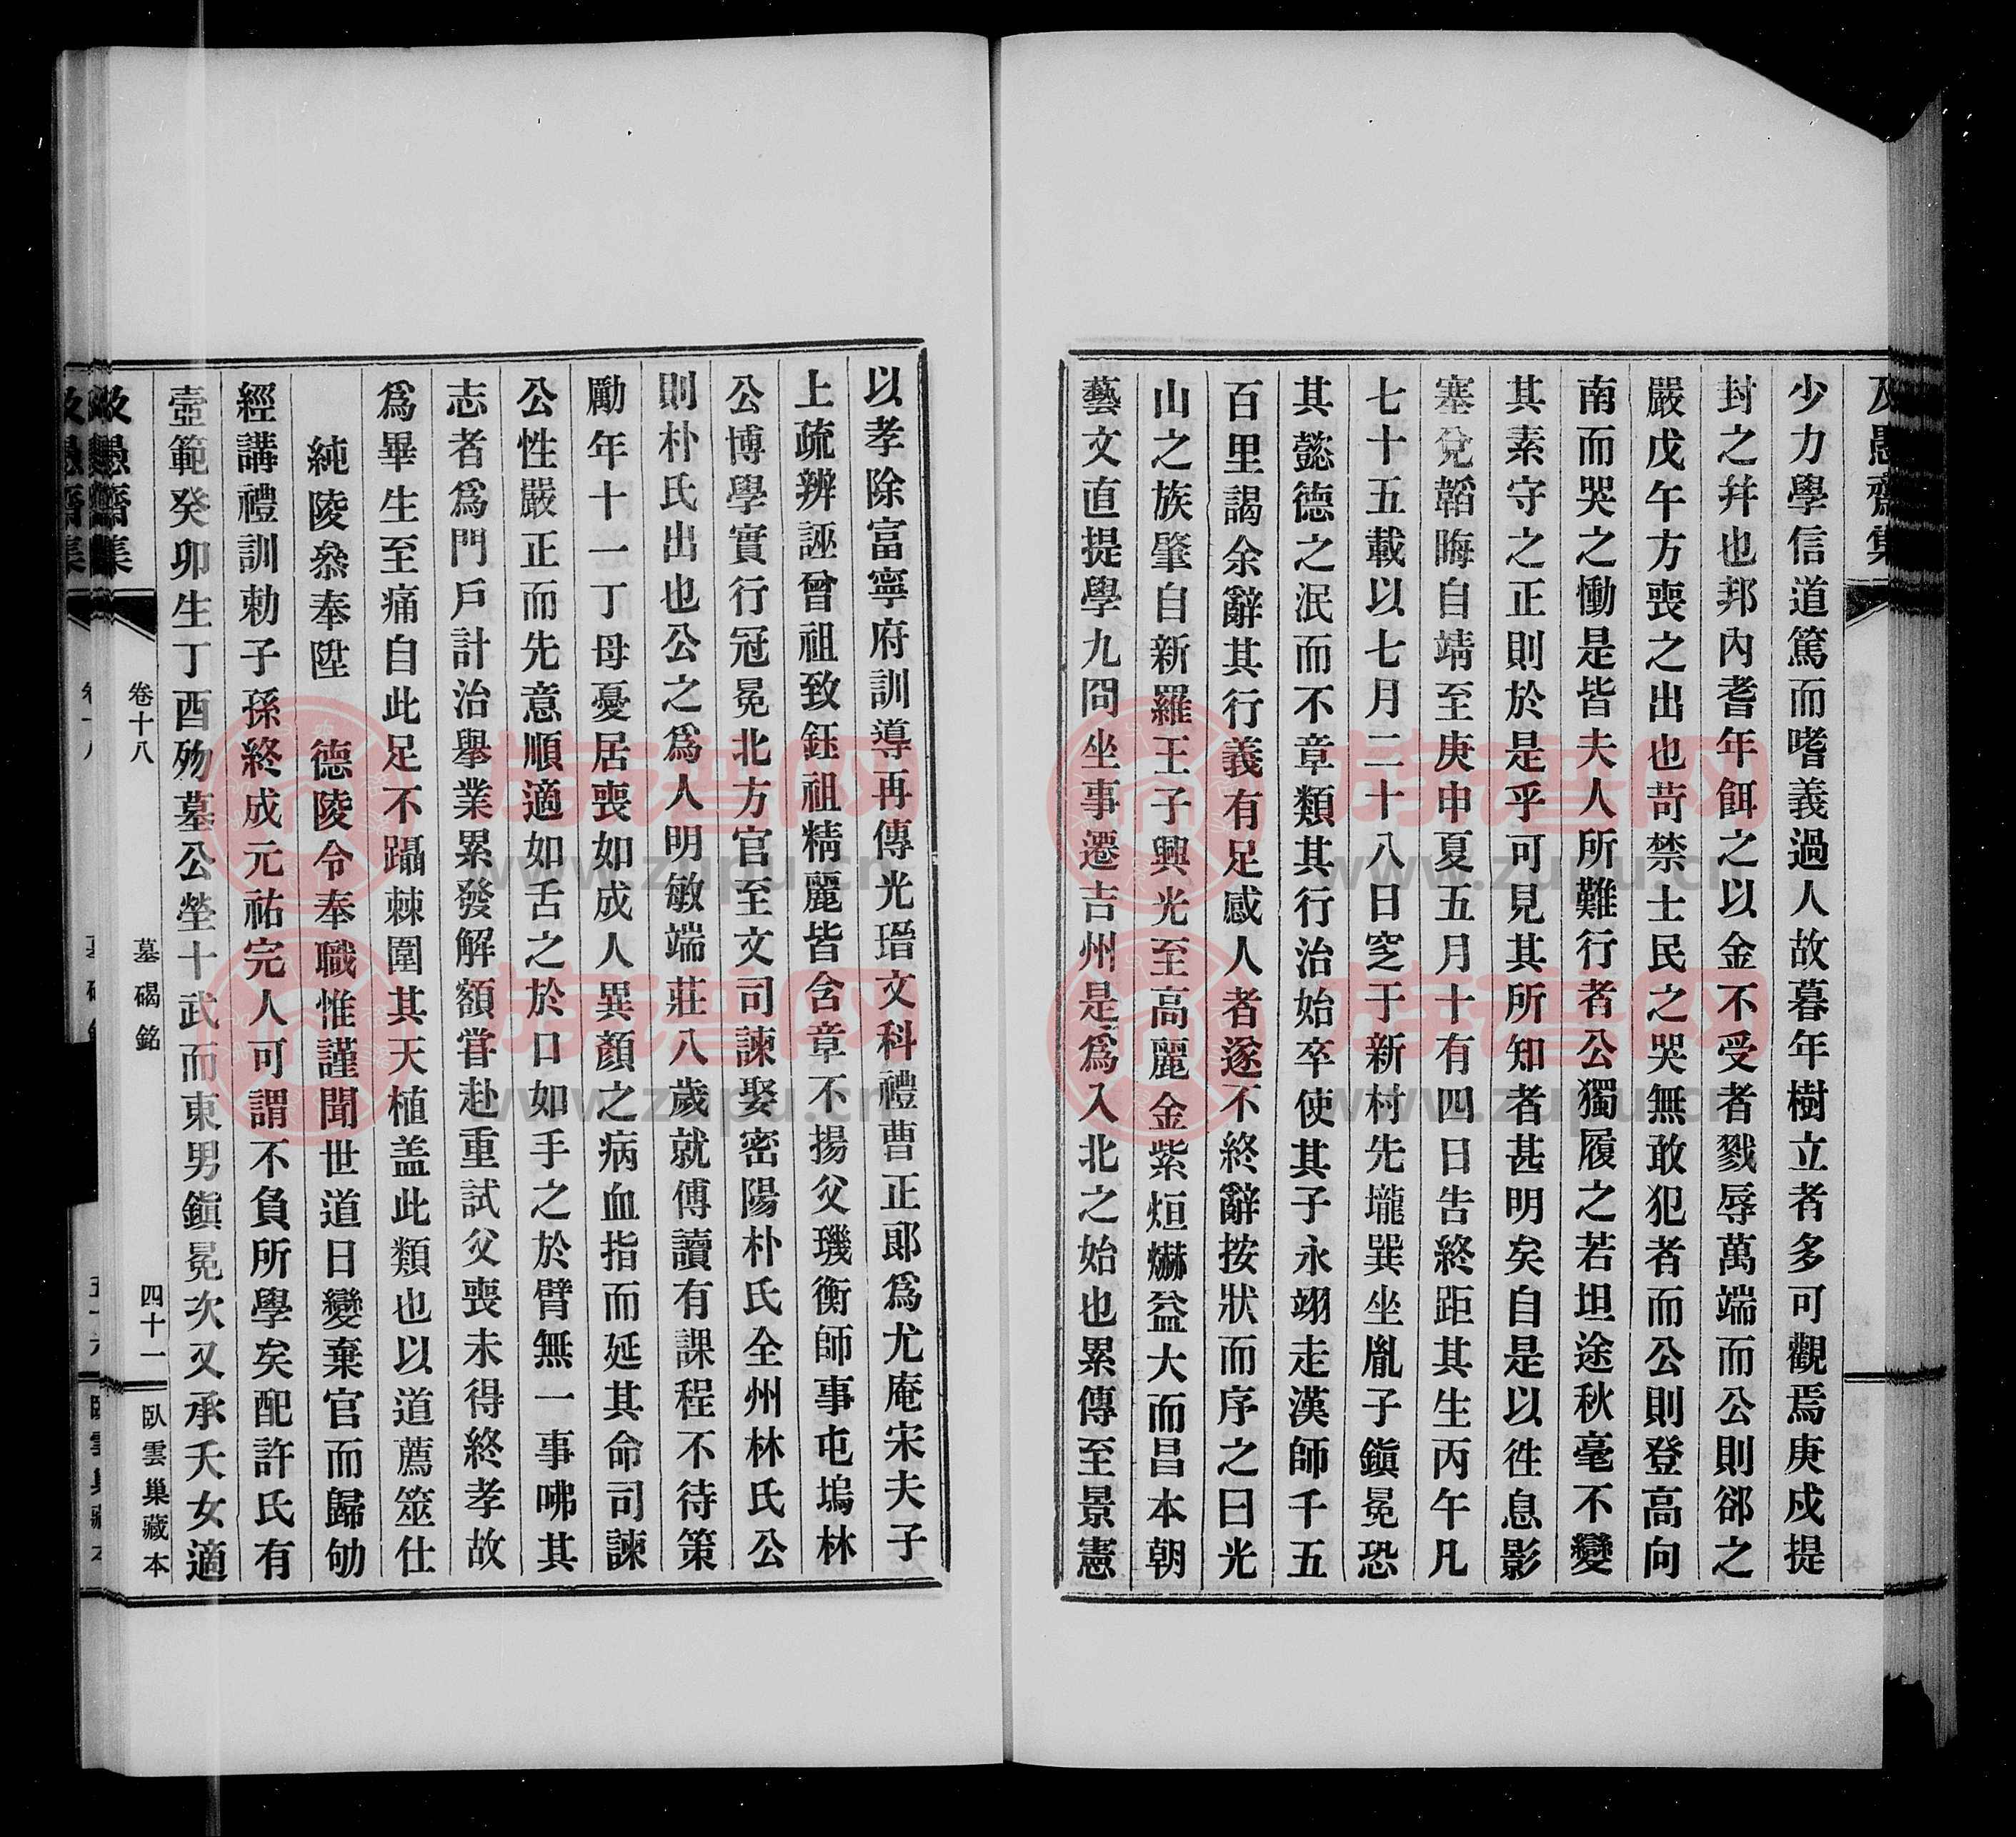 及愚齋集
少力學信道篤而嗜義過人故暮年樹立者多可觀焉庚戍提
封之幷也邦內耆年餌之以金不受者戮辱萬端而公則郤之
嚴戊午方喪之出也苛禁士民之哭無敢犯者而公則登高向
南而哭之慟是皆夫人所難行者公獨履之若坦途秋毫不變
其素守之正則於是乎可見其所知者甚明矣自是以徃息影
塞兌韜晦自靖至庚申夏五月十有四日告終距其生丙午凡
七十五載以七月二十八日窆于新村先壠巽坐胤子鎭冕恐
其懿德之泯而不章類其行治始卒使其子永翊走漢師千五
百里謁余辭其行義有足感人者遂不終辭按狀而序之曰光
山之族肇自新羅王子興光至高麗金紫烜爀益大而昌本朝
藝文直提學九冏坐事遷吉州是爲入北之始也累傳至景憲
以孝除富寧府訓導再傳光瑨文科禮曹正郞爲尤庵宋夫子
上疏辨誣曾祖致鈺祖精麗皆含章不揚父璣衡師事屯塢林
公博學實行冠冕北方官至文司諫娶密陽朴氏全州林氏公
則朴氏出也公之爲人明敏端莊八歲就傅讀有課程不待策
勵年十一丁母憂居喪如成人異顏之病血指而延其命司諫
公性嚴正而先意順適如舌之於口如手之於臂無一事咈其
志者爲門戶計治擧業累發解額嘗赴重試父喪未得終孝故
爲畢生至痛自此足不躡棘圍其天植盖此類也以道薦筮仕
純陵叅奉陞 德陵令奉職惟謹聞世道日變棄官而歸劬
經講禮訓勅子孫終成元祐完人可謂不負所學矣配許氏有
壼範癸卯生丁酉歿墓公塋十武而東男鎭冕次又承夭女適
及愚齋集 卷十八 墓碣銘 四十一 臥雲巢藏本